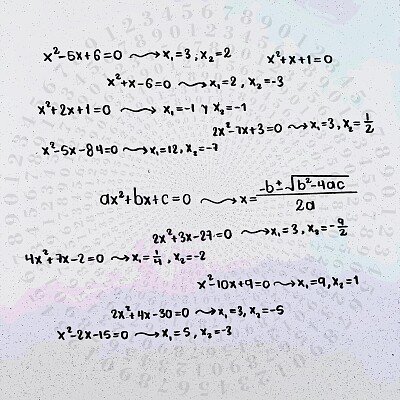 x²-5x+6=0 ⟿ x₁=3; x₂=2
x²+x+1=0
x²+x-6=0 ⟿ x₁=2, x₂=-3
x²+2x+1=0 ⟿ x₁=-1 y x₂=-1
2x²-7x+3=0 ⟿ x₁=3, x₂=1/2
x²-5x-84=0 ⟿ x₁=12, x₂=-7
ax²+bx+c=0 ⟿ x=(-b±√(b²-4ac))/2a
2x²+3x-27=0 ⟿ x₁=3, x₂=-9/2
4x²+7x-2=0 ⟿ x₁=1/4, x₂=-2
x²-10x+9=0 ⟿ x₁=9, x₂=1
2x²+4x-30=0 ⟿ x₁=3, x₂=-5
x²-2x-15=0 ⟿ x₁=5, x₂=-3